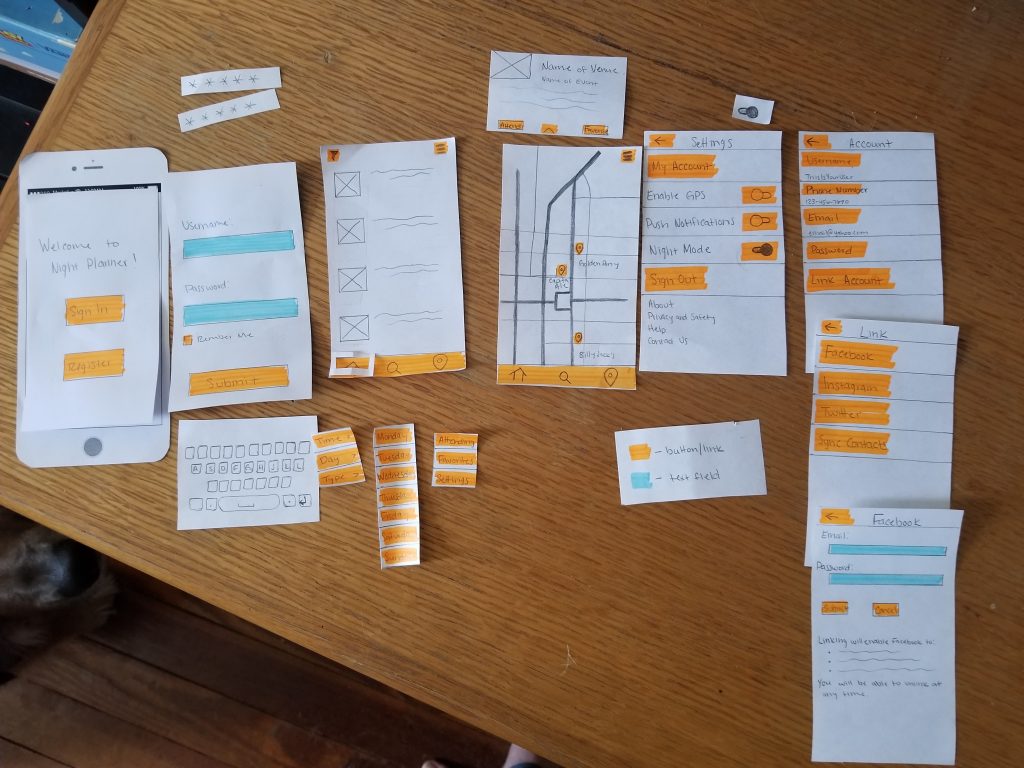 * * * * *
* * * * *
Welcome to
Night Planner!
Sign In
Register
Username:
Password:
Rember Me
Submit
Name of Venue
Name of Event
Attend
Favorite
Golden Pony
Billy Jack's
Settings
My Account
Enable GPS
Push Notifications
Night Mode
Sign Out
About
Privacy and Safety
Help
Contact Us
Account
Username
ThisIsYourUser
Phone Number
123-456-7890
Email
email@yahoo.com
Password
Link Account
Link
Facebook
Instagram
Twitter
Sync Contacts
Facebook
Email:
Password:
Submit
Cancel
Linking will enable Facebook to:
You will be able to unlink at
any time.
A S D F G H J K L
Time >
Day >
Type >
Monday
Tuesday
Wednesday
Thursday
Friday
Saturday
Sunday
Attending
Favorites
Settings
- button/link
- text field